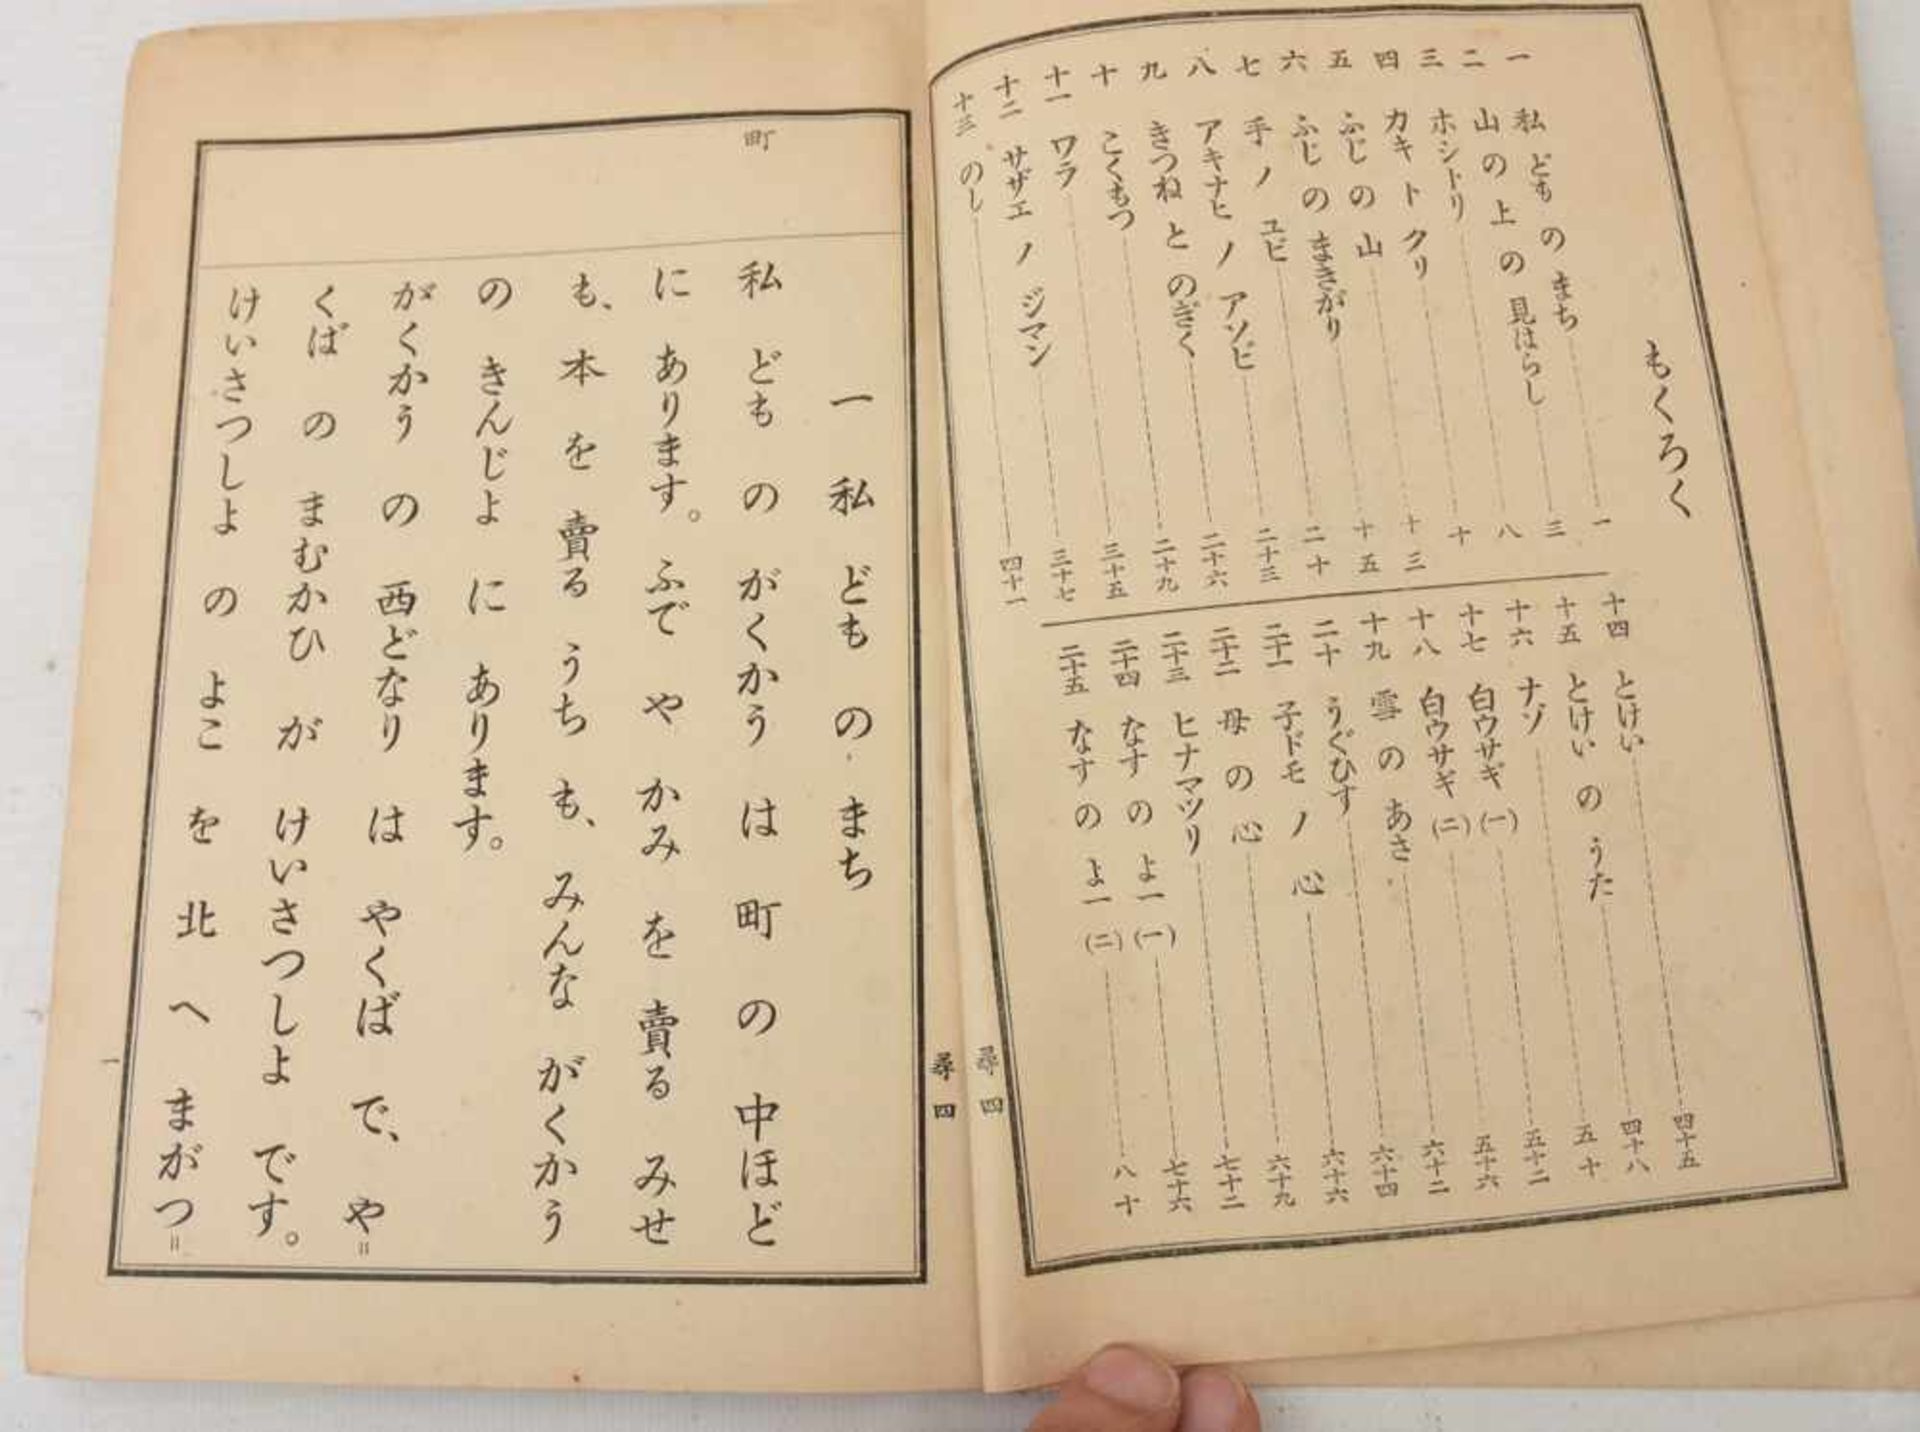 もくろく
一 私 ども の まち 一
二 山 の 上 の 見はらし 三
三 ホシトリ 八
四 カキ ト クリ 十
五 ふじ の 山 十三
六 ふじ の まきがり 十五
七 手 ノ ユビ 二十
八 アキナヒ ノ アソビ 二十三
九 きつね と のぎく 二十六
十 こくもつ 二十九
十一 ワラ 三十五
十二 サザエ ノ ジマン 三十七
十三 のし 四十一
十四 とけい 四十五
十五 とけい の うた 四十八
十六 ナゾ 五十
十七 白ウサギ (一) 五十二
十八 白ウサギ (二) 五十六
十九 雪 の あさ 六十二
二十 うぐひす 六十四
二十一 子ドモ ノ 心 六十六
二十二 母 の 心 六十九
二十三 ヒナマツリ 七十二
二十四 なす の よ一 (一) 七十六
二十五 なす の よ一 (二) 八十
尋四
尋四
町
一 私 ども の まち
私 ども の がくかう は 町 の 中ほど
に あります。ふで や かみ を 賣る みせ
も、本 を 賣る うち も、みんな がくかう
の きんじよ に あります。
がくかう の 西どなり は やくば で、や=
くば の まむかひ が けいさつしよ です。
けいさつしよ の よこ を 北 へ まがつ=
一